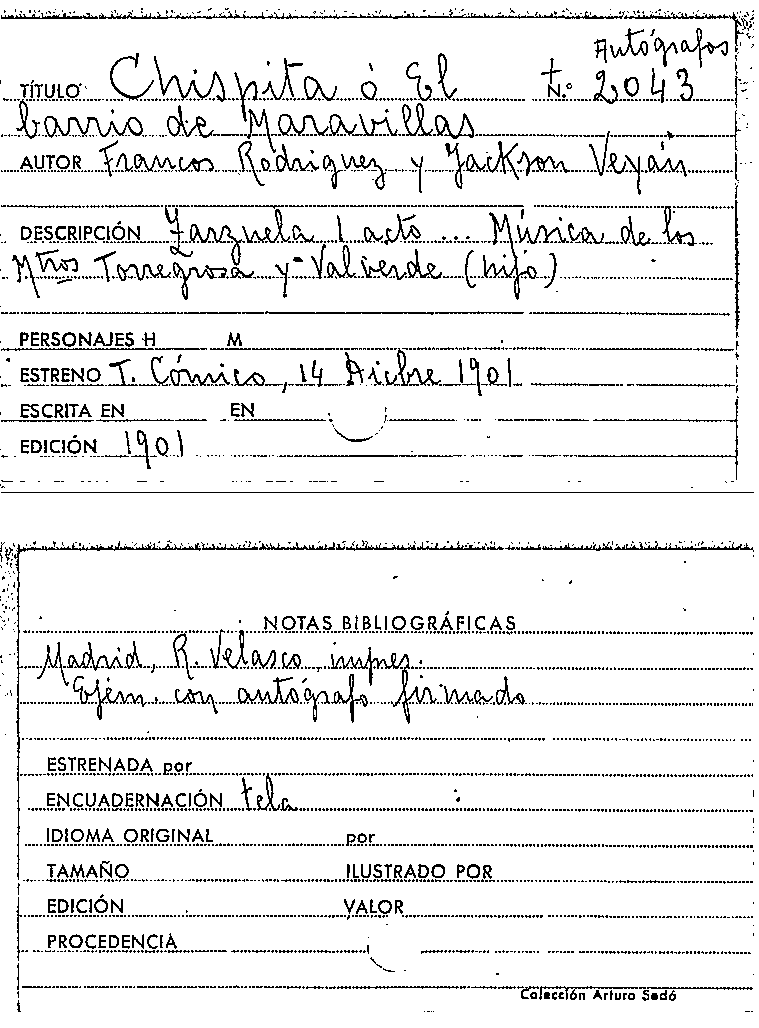 Autógrafos
TÍTULO Chispita ó El N.º 2043
barrio de Maravillas
AUTOR Francos Rodriguez y Jackson Veyán
DESCRIPCIÓN Zarzuela 1 acto ... Música de los
Mtros Torregrosa y Valverde (hijo)
PERSONAJES H M
ESTRENO T. Cómico, 14 Dicbre 1901
ESCRITA EN EN
EDICIÓN 1901
NOTAS BIBLIOGRÁFICAS
Madrid, R. Velasco, impres.
Ejem. con autógrafo firmado
ESTRENADA por
ENCUADERNACIÓN tela
IDIOMA ORIGINAL por
TAMAÑO ILUSTRADO POR
EDICIÓN VALOR
PROCEDENCIA
Colección Arturo Sedó